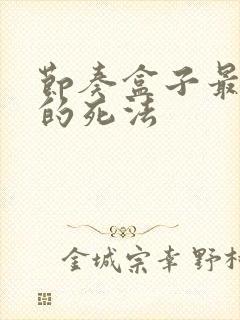 節奏盒子最
的死法
金城宗幸野村